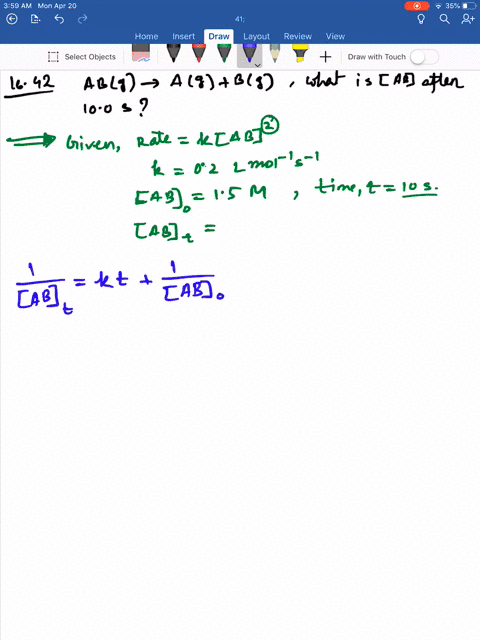 3:59 AM Mon Apr 20
35%
41:
Home Insert Draw Layout Review View
Select Objects
Draw with Touch
16.42 AB(g) → A(g) + B(g) , what is [AB] after
10.0 s ?
Given, Rate = k[AB]²
k = 0.2 L mol⁻¹ s⁻¹
[AB]₀ = 1.5 M , time, t = 10 s.
[AB]ₜ =
1/[AB]ₜ = kt + 1/[AB]₀